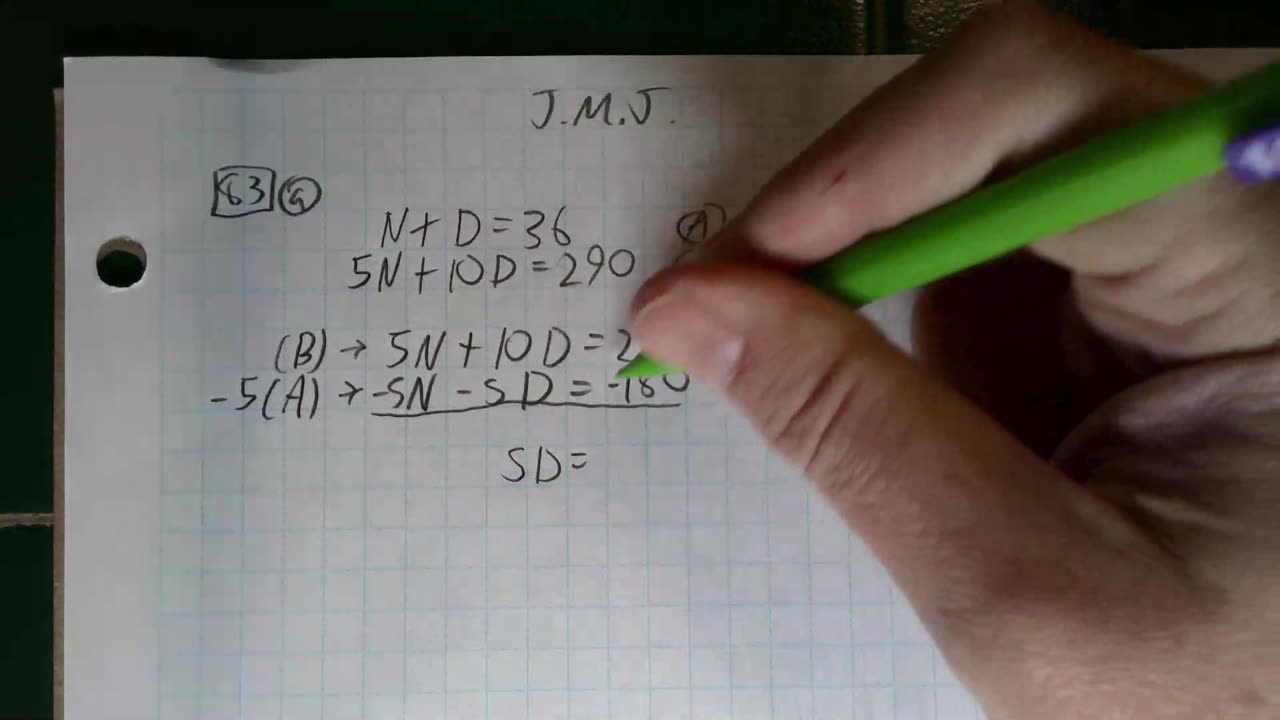 J.M.J.
63 a
N + D = 36 A
5N + 10D = 290
(B) → 5N + 10D = 2
-5(A) → -5N - 5D = -180
5D =